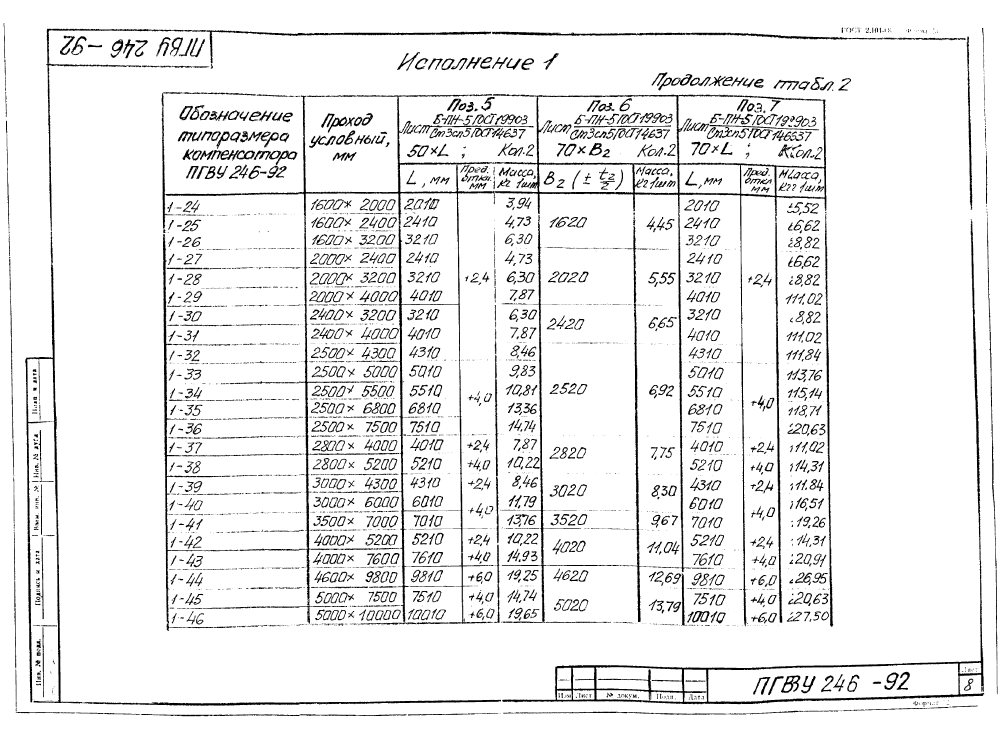 ГОСТ 2.101-68
ПГВУ 246 -92
Исполнение 1
Продолжение табл. 2
Обозначение типоразмера компенсатора ПГВУ 246-92 | Проход условный, мм | Поз. 5 Лист Б-ПН-5 ГОСТ 19903 / Ст3сп5 ГОСТ 14637 50×L ; Кол. 2 | Поз. 6 Лист Б-ПН-5 ГОСТ 19903 / Ст3сп5 ГОСТ 14637 70×В2 Кол. 2 | Поз. 7 Лист Б-ПН-5 ГОСТ 19903 / Ст3сп5 ГОСТ 14637 70×L ; Кол. 2
L, мм | Пред. откл. мм | Масса, кг 1 шт | В2 (± t2/2) | Масса, кг 1 шт | L, мм | Пред. откл. мм | Масса, кг 1 шт
1-24 1600× 2000 2010 3,94 2010 5,52
1-25 1600× 2400 2410 4,73 1620 4,45 2410 6,62
1-26 1600× 3200 3210 6,30 3210 8,82
1-27 2000× 2400 2410 4,73 2410 6,62
1-28 2000× 3200 3210 +2,4 6,30 2020 5,55 3210 +2,4 8,82
1-29 2000× 4000 4010 7,87 4010 11,02
1-30 2400× 3200 3210 6,30 2420 6,65 3210 8,82
1-31 2400× 4000 4010 7,87 4010 11,02
1-32 2500× 4300 4310 8,46 4310 11,84
1-33 2500× 5000 5010 9,83 5010 13,76
1-34 2500× 5500 5510 +4,0 10,81 2520 6,92 5510 +4,0 15,14
1-35 2500× 6800 6810 13,36 6810 18,71
1-36 2500× 7500 7510 14,74 7510 20,63
1-37 2800× 4000 4010 +2,4 7,87 2820 7,75 4010 +2,4 11,02
1-38 2800× 5200 5210 +4,0 10,22 5210 +4,0 14,31
1-39 3000× 4300 4310 +2,4 8,46 3020 8,30 4310 +2,4 11,84
1-40 3000× 6000 6010 +4,0 11,79 6010 +4,0 16,51
1-41 3500× 7000 7010 13,76 3520 9,67 7010 19,26
1-42 4000× 5200 5210 +2,4 10,22 4020 11,04 5210 +2,4 14,31
1-43 4000× 7600 7610 +4,0 14,93 7610 +4,0 20,91
1-44 4600× 9800 9810 +6,0 19,25 4620 12,69 9810 +6,0 26,95
1-45 5000× 7500 7510 +4,0 14,74 5020 13,79 7510 +4,0 20,63
1-46 5000× 10000 10010 +6,0 19,65 10010 +6,0 27,50
Подп. и дата
Инв. № дубл.
Взам. инв. №
Подпись и дата
Инв. № подл.
Изм Лист № докум. Подп. Дата
ПГВУ 246 -92
Лист
8
Формат